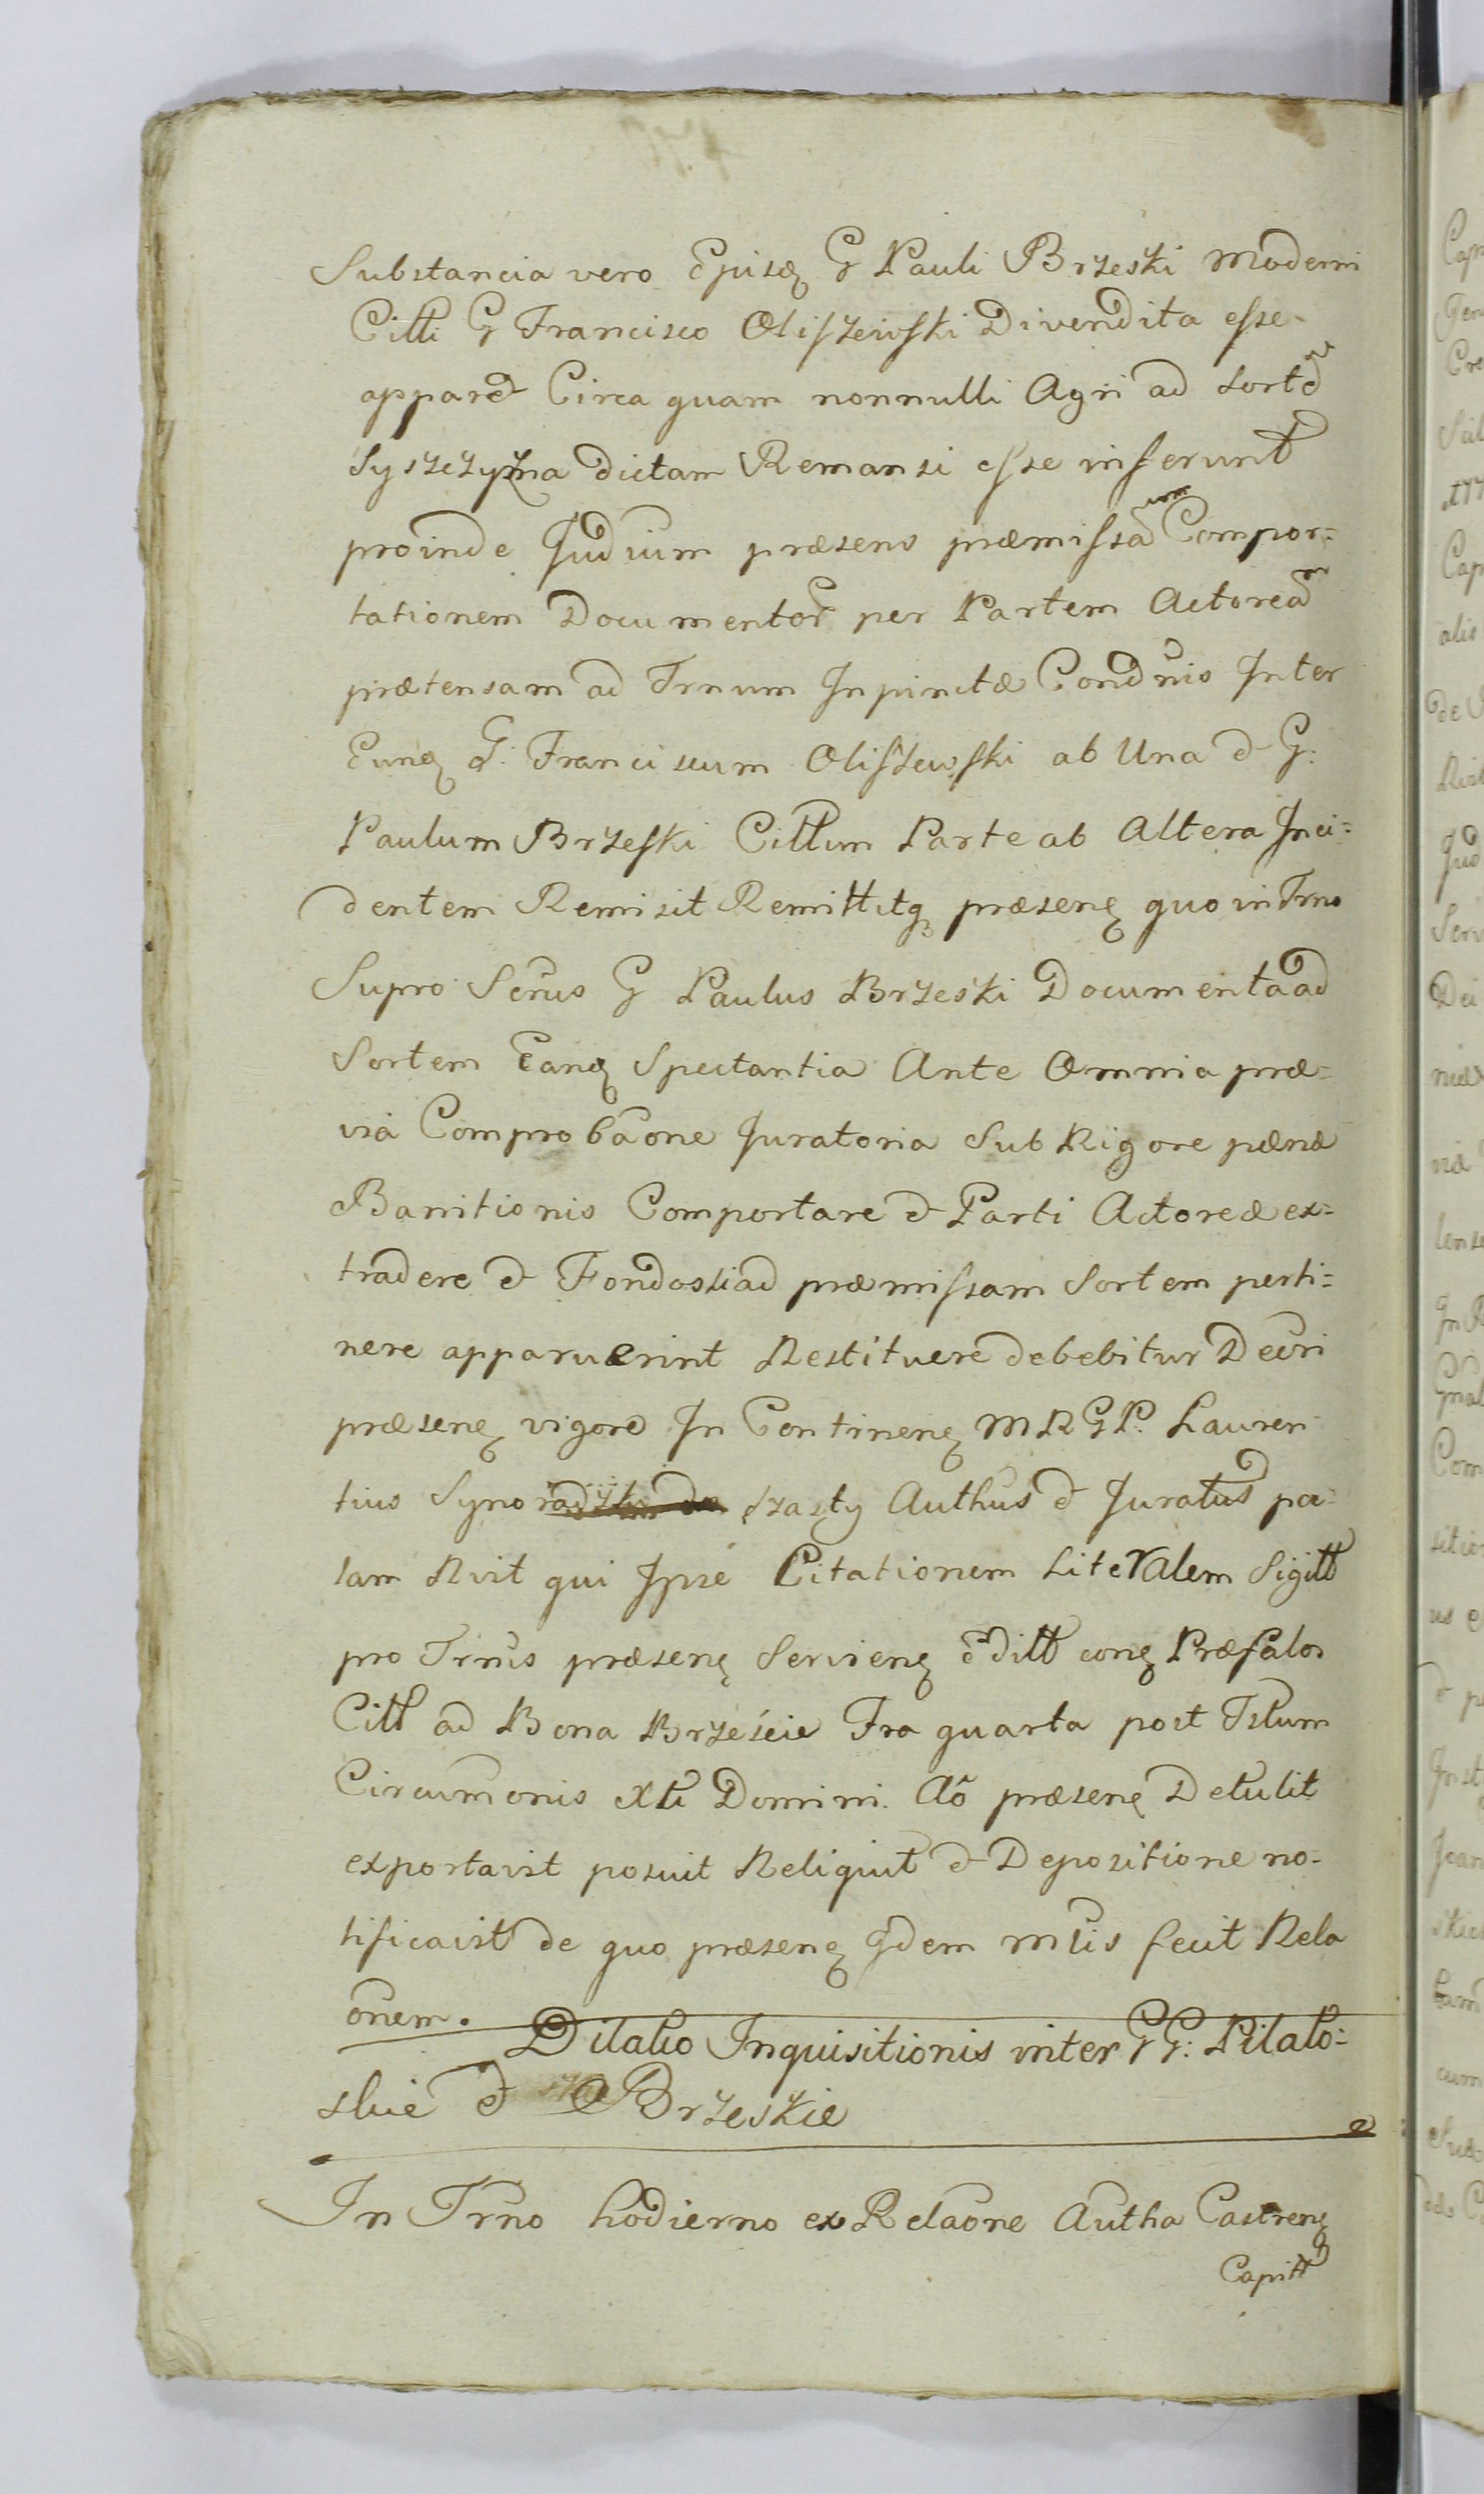 Substancia vero Ejusq G Pauli Brzeski Moderni
Citti G Francisco Oliszewski Divendita esse
apparet Circa quam nonnulli Agri ad Sortem
Syszczyzna dictam Remansi esse inferunt
proinde Judium præsens præmissam Compor:
tationem Documentor per Partem Actoream
prætensam ad Trnum Inpinctæ Condnis Inter
Eunq G: Franciscum Oliszewski ab Una et G:
Paulum Brzeski Cittum Parte ab Altera Inci:
dentem Remisit Remittitq præsenq quo in Trno
Supro Serus G Paulus Brzeski Documenta ad
Sortem Eanq Spectantia Ante Omnia præ:
via Comprobaone Juratoria Sub Rigore pænæ
Bannitionis Comportare et Parti Actoreæ ex:
tradere et Fondos si ad præmissam Sortem perti:
nere apparuerint Restituere debebitur Decri
præsenq vigore In Continenq M R G P. Lauren
tius Synoradzki de Szasty Authus et Juratus pa:
lam Rvit qui Ipse Citationem Literalem Sigitt
pro Trnis præsenq Servienq Editt conq Præfatos
Citt ad Bona Brzeście Fra quarta post Fstum
Circumonis Xti Domini. Ao præsenq Detulit
exportavit posuit Reliquit et Depositione no:
tificavit de quo præsenq Idem Mlis fecit Rela
onem.
Dilatio Inquisitionis inter GG: Pilato:
skie et Brzeskie
In Trno hodierno ex Relaone Autha Castrenq
Capitt